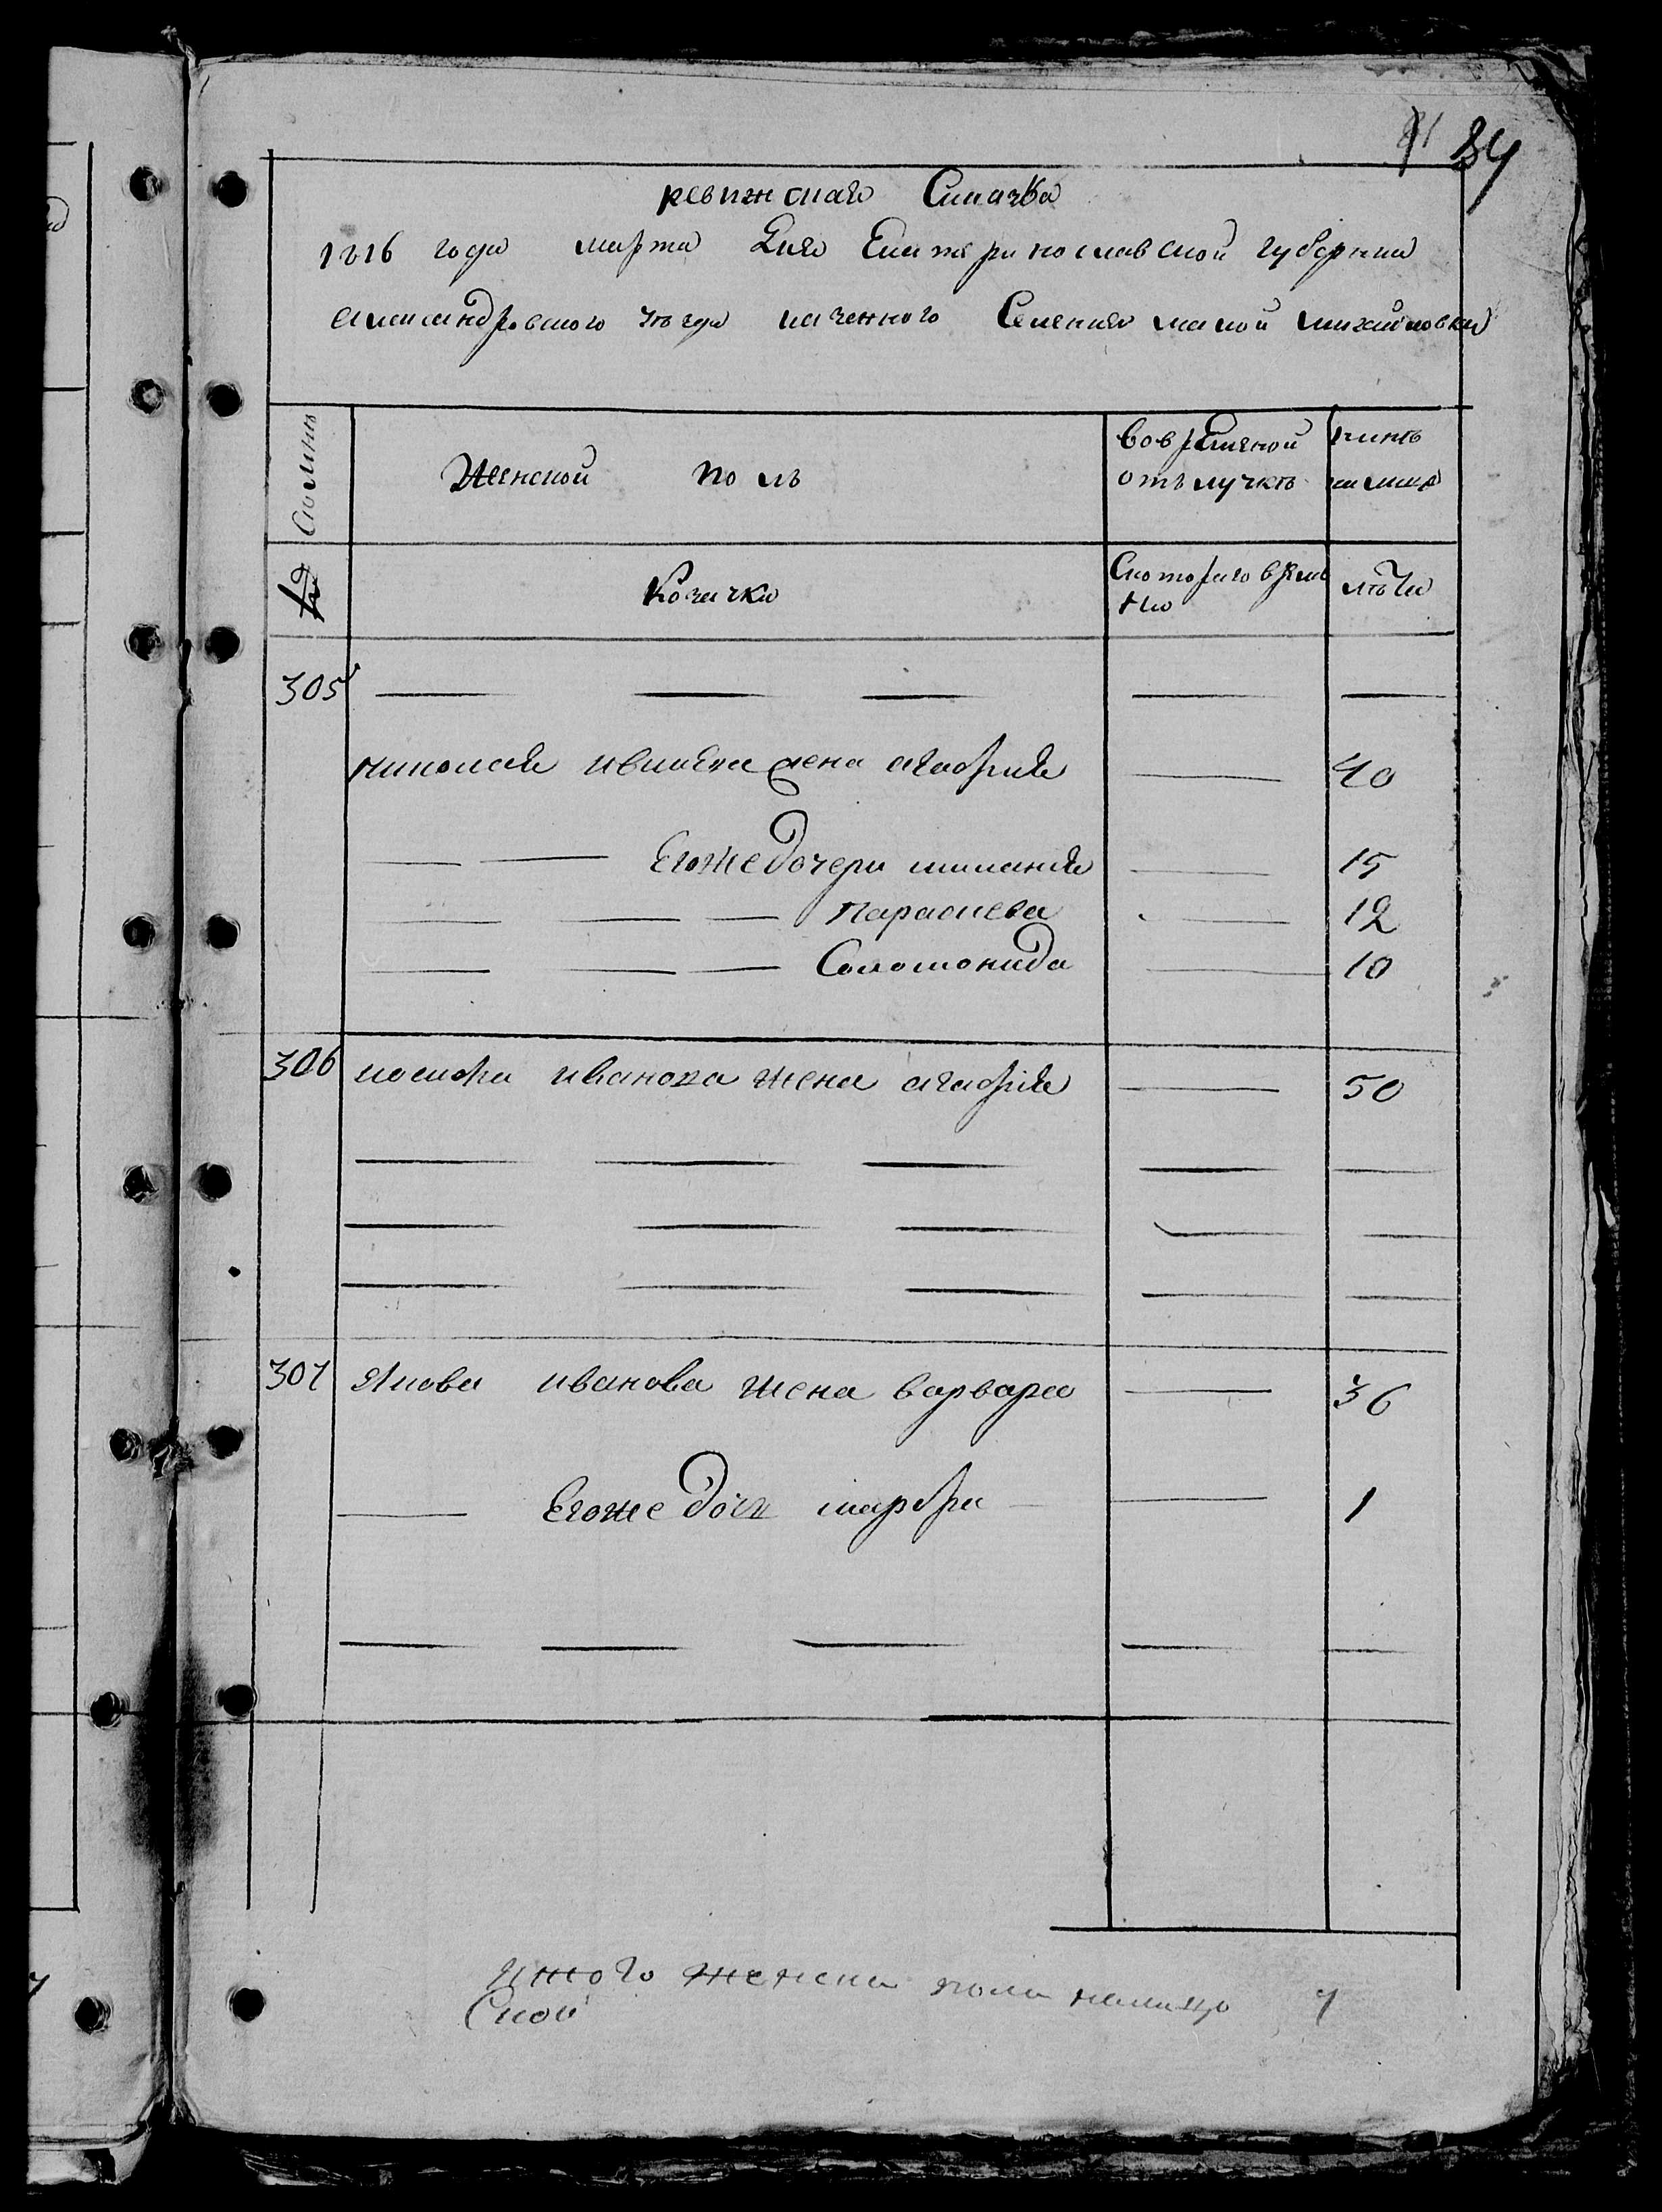 84
ревижская Сказка
1816 года марта Дня Екатеринославской губернии
александровского уѣзда казенного Селения малой михайловки
Семьи
Женской полъ
вовременой
отълучкѣ
нынѣ
на лицо
№
Козачки
Скоторого време
ни
лѣта
305
николая иванова жена агафия 40
Егоже дочери миланя 15
Параскева 12
Соломонида 10
306 иосифа иванова жена агафия 50
307 Якова иванова жена варвара 36
Егоже дочь марфа 1
Итого женска пола налицо 7
Ской